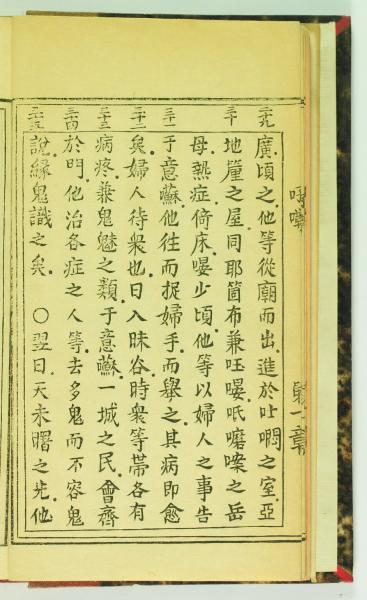 二九 廣頃之他等從廟而出進於吐啁之室亞
三十 地篱之屋同耶箇布兼呸㬫呧嚰嗓之岳
母熱症倚床㬫少頃他等以婦人之事告
三十一 于意囌他往而捉婦手而舉之其病即愈
三十二 矣婦人待衆也日入昧谷時衆等帶各有
三十三 病疼兼鬼魅之類于意囌一城之民會齊
三十四 於門他治各症之人等去多鬼而不容鬼
三十五 說緣鬼識之矣〇翌日天未曙之先他
第一章